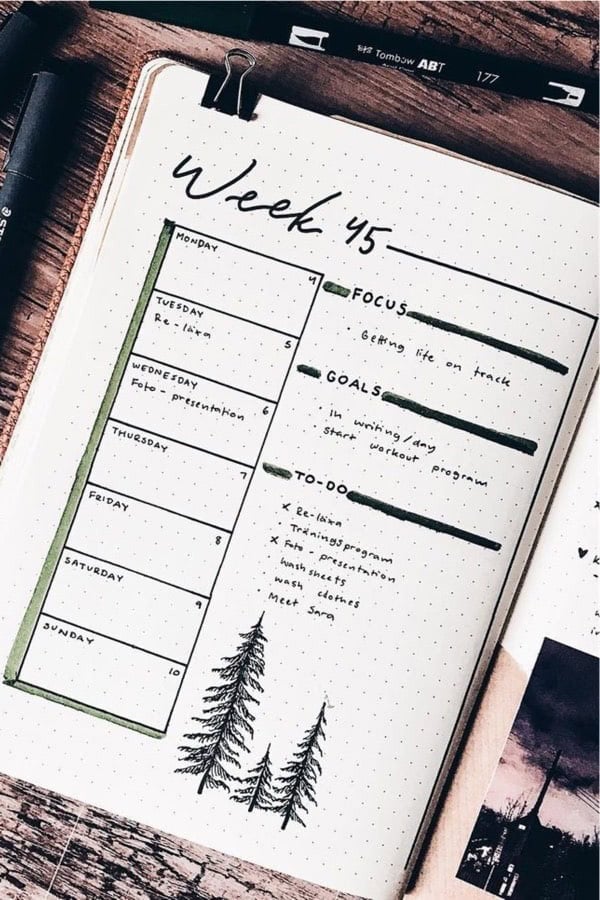 Tombow ABT 177
Week 45
MONDAY
4
TUESDAY
5
Re-läxa
WEDNESDAY
6
Foto-presentation
THURSDAY
7
FRIDAY
8
SATURDAY
9
SUNDAY
10
FOCUS
• Getting life on track
GOALS
• 1h writing/day
• Start workout program
TO-DO
x Re-läxa
• Träningsprogram
x Foto-presentation
• Wash sheets
• wash clothes
• Meet Sara